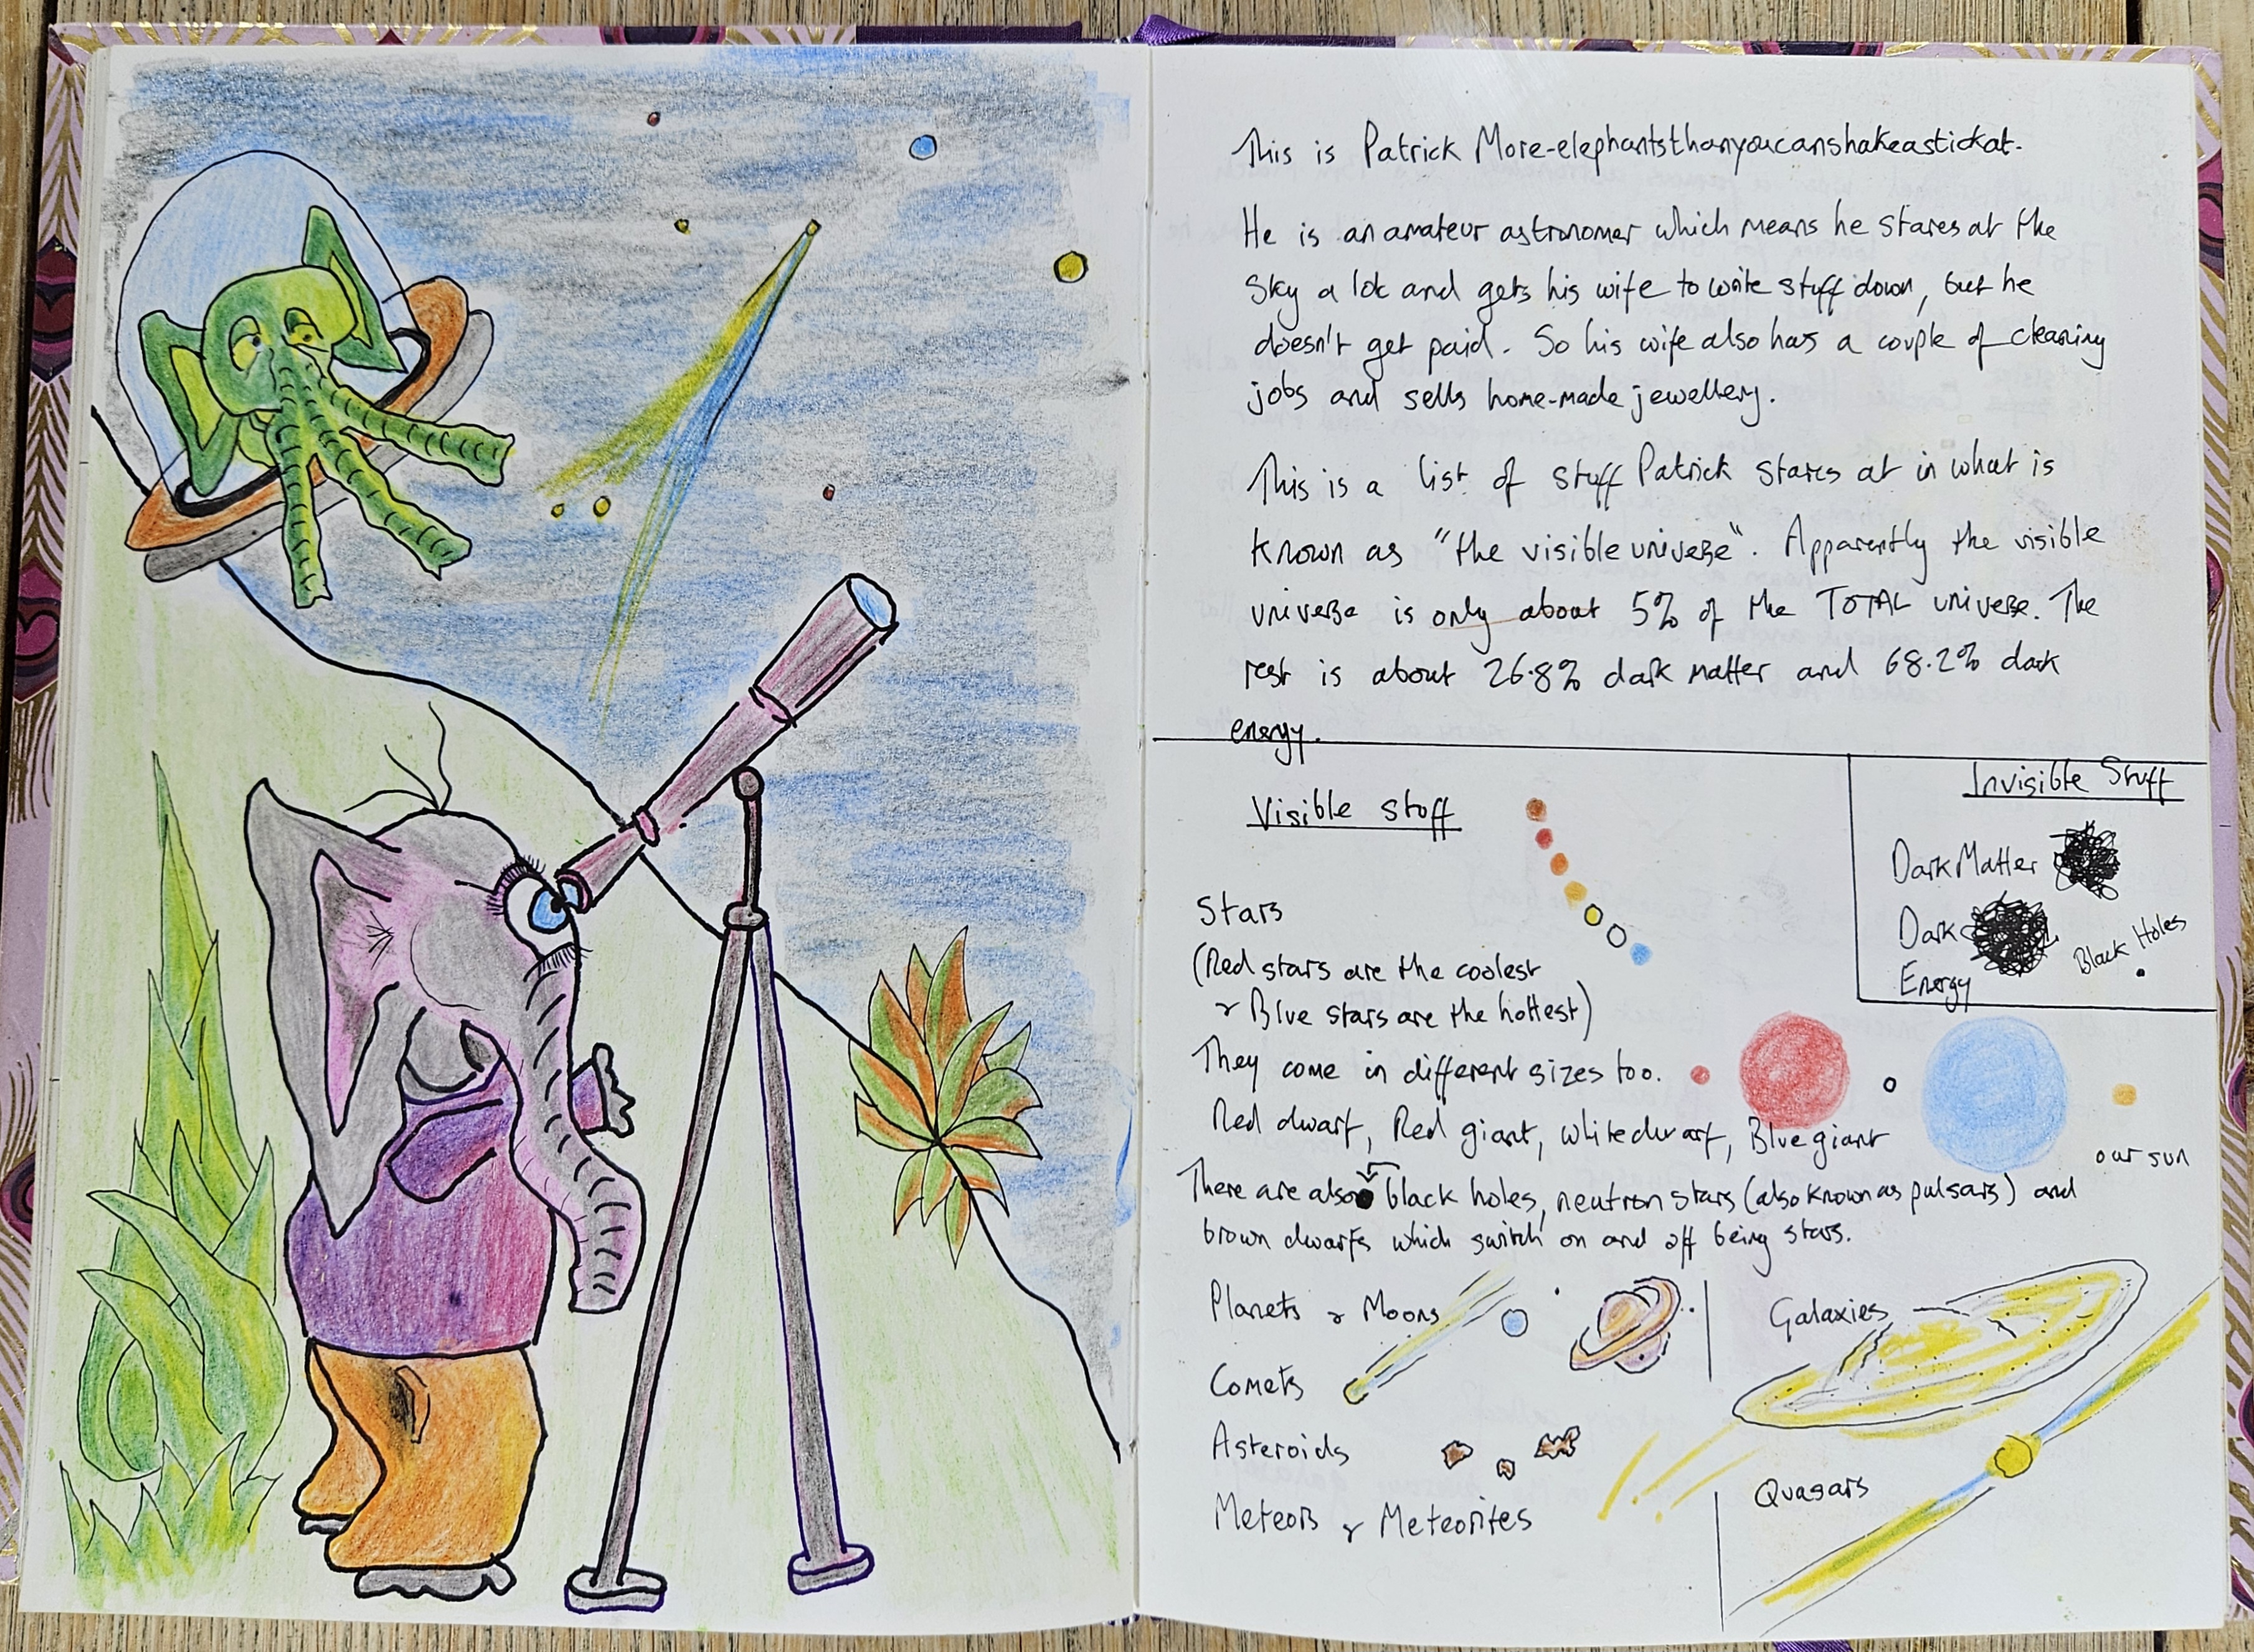 This is Patrick More-elephantsthanyoucanshakeastickat.
He is an amateur astronomer which means he stares at the
sky a lot and gets his wife to write stuff down, but he
doesn't get paid. So his wife also has a couple of cleaning
jobs and sells home-made jewellery.
This is a list of stuff Patrick stares at in what is
known as "the visible universe". Apparently the visible
universe is only about 5% of the TOTAL universe. The
rest is about 26.8% dark matter and 68.2% dark
energy.
Visible stuff
Stars
(Red stars are the coolest
& Blue stars are the hottest)
They come in different sizes too.
Red dwarf, Red giant, white dwarf, Blue giant
our sun
There are also black holes, neutron stars (also known as pulsars) and
brown dwarfs which switch on and off being stars.
Planets & Moons
Comets
Asteroids
Meteors & Meteorites
Galaxies
Quasars
Invisible Stuff
Dark Matter
Dark
Energy
Black Holes